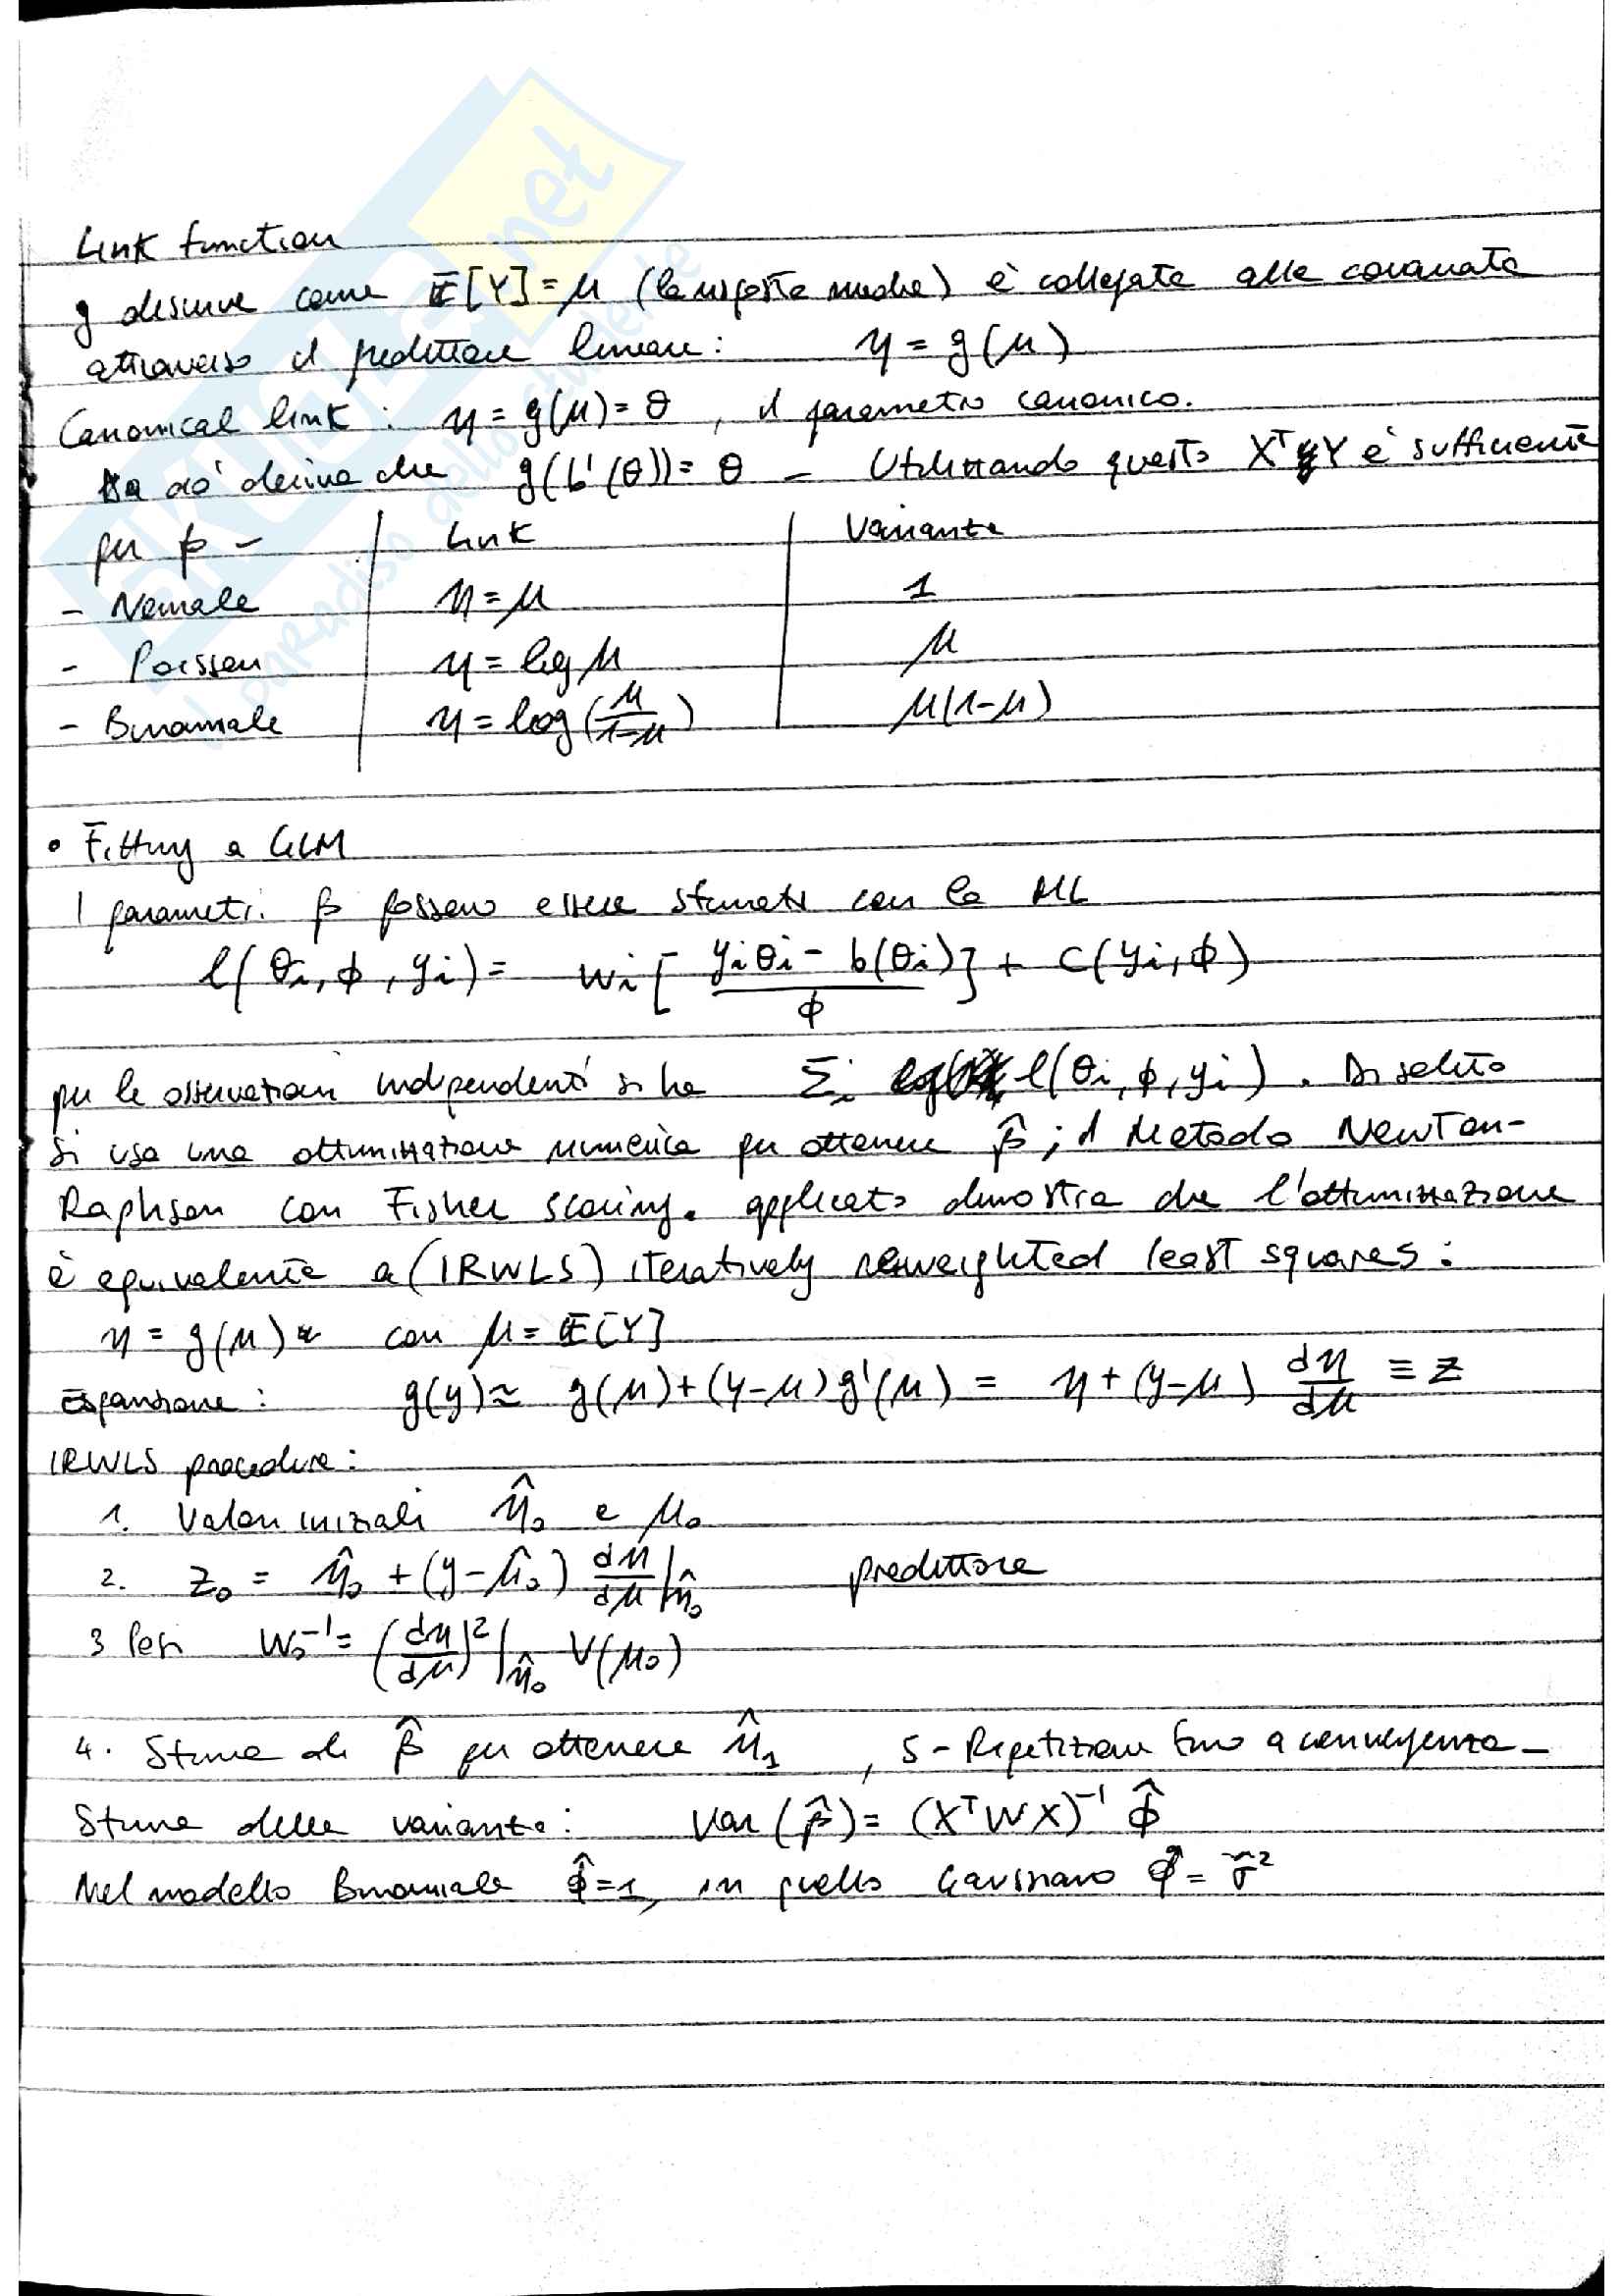 Link function
g descrive come E[Y] = μ (la risposta media) è collegata alle covariate
attraverso il predittore lineare: η = g(μ)
Canonical link: η = g(μ) = θ, il parametro canonico.
Da ciò deriva che g(b'(θ)) = θ – Utilizzando questo XᵀY è sufficiente
per β – | Link | Varianza
- Normale | η = μ | 1
- Poisson | η = log μ | μ
- Binomiale | η = log(μ/(1-μ)) | μ(1-μ)
• Fitting a GLM
I parametri β possono essere stimati con la ML
l(θi, φ, yi) = wi [ (yiθi - b(θi))/φ ] + c(yi, φ)
per le osservazioni indipendenti si ha Σi l(θi, φ, yi). Di solito
si usa una ottimizzazione numerica per ottenere β̂; il Metodo Newton-
Raphson con Fisher scoring. applicato dimostra che l'ottimizzazione
è equivalente a (IRWLS) iteratively reweighted least squares:
η = g(μ) con μ = E[Y]
Espansione: g(y) ≈ g(μ) + (y-μ) g'(μ) = η + (y-μ) dη/dμ ≡ z
IRWLS procedure:
1. Valori iniziali η̂₀ e μ₀
2. z₀ = η̂₀ + (y-μ̂₀) dη/dμ |η̂₀ predittore
3 Pesi W₀⁻¹ = (dη/dμ)² |η̂₀ V(μ₀)
4. Stima di β̂ per ottenere η̂₁ , 5 - Ripetizione fino a convergenza –
Stima della varianza: Var(β̂) = (XᵀWX)⁻¹ φ̂
Nel modello Binomiale φ̂=1, in quello Gaussiano φ̂ = σ̂²
SKUOLA.net
il paradiso dello studente